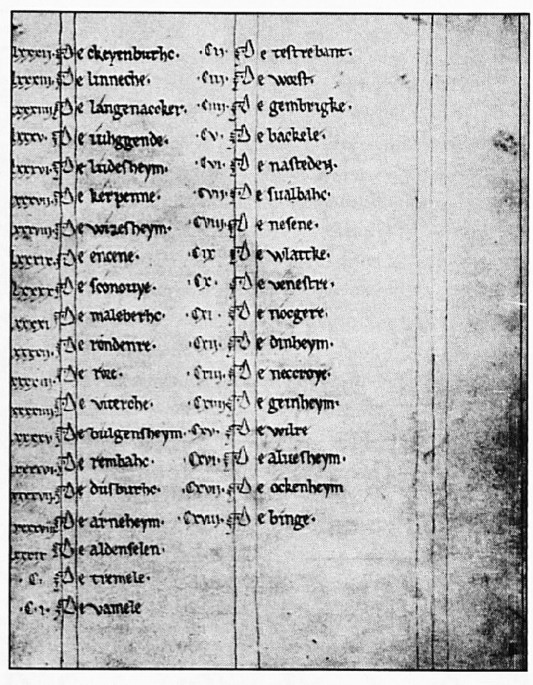 lxxxii. De ckeyenburhc.
lxxxiii. De linneche.
lxxxiiii. De langenaccker.
lxxxv. De
lxxxvi. De ludesheym.
lxxxvii. De kerpenne.
lxxxviii. De wizesheym.
lxxxix. De encene.
lxxxx. De sconouye.
lxxxxi. De maleberhc.
lxxxxii. De rondenre.
lxxxxiii. De
lxxxxiiii. De viterche.
lxxxxv. De bulgensheym.
lxxxxvi. De rembahc.
lxxxxvii. De dusburhc.
lxxxxviii. De arneheym.
lxxxxix. De aldenselen.
.C. De tremele.
.C.i. De vamele
.Cii. De testrebant.
.Ciii. De woest.
.Ciiii. De gembrigke.
.Cv. De backele.
.Cvi. De nasteden.
.Cvii. De sualbahc.
.Cviii. De nesene.
.Cix De wlattke.
.Cx. De venestre.
.Cxi. De nocgere.
.Cxii. De dinheym.
.Cxiii. De neccroye.
.Cxiiii. De geinheym.
.Cxv. De wilre
.Cxvi. De aluesheym.
.Cxvii. De ockenheym
.Cxviii. De binge.